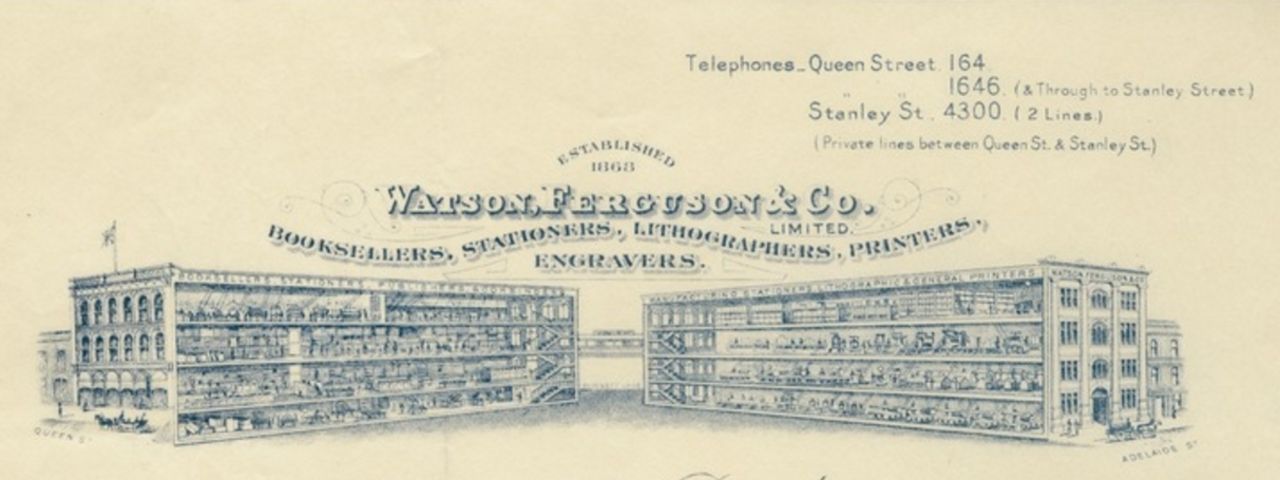 Telephones_Queen Street. 164.
" " 1646. (& Through to Stanley Street.)
Stanley St. 4300. (2 Lines.)
(Private lines between Queen St. & Stanley St.)
ESTABLISHED
1868
WATSON, FERGUSON & CO.
LIMITED.
BOOKSELLERS, STATIONERS, LITHOGRAPHERS, PRINTERS,
ENGRAVERS.
BOOKSELLERS, STATIONERS, PUBLISHERS, BOOKBINDERS
MANUFACTURING STATIONERS LITHOGRAPHIC & GENERAL PRINTERS
WATSON FERGUSON & CO
QUEEN ST
ADELAIDE ST